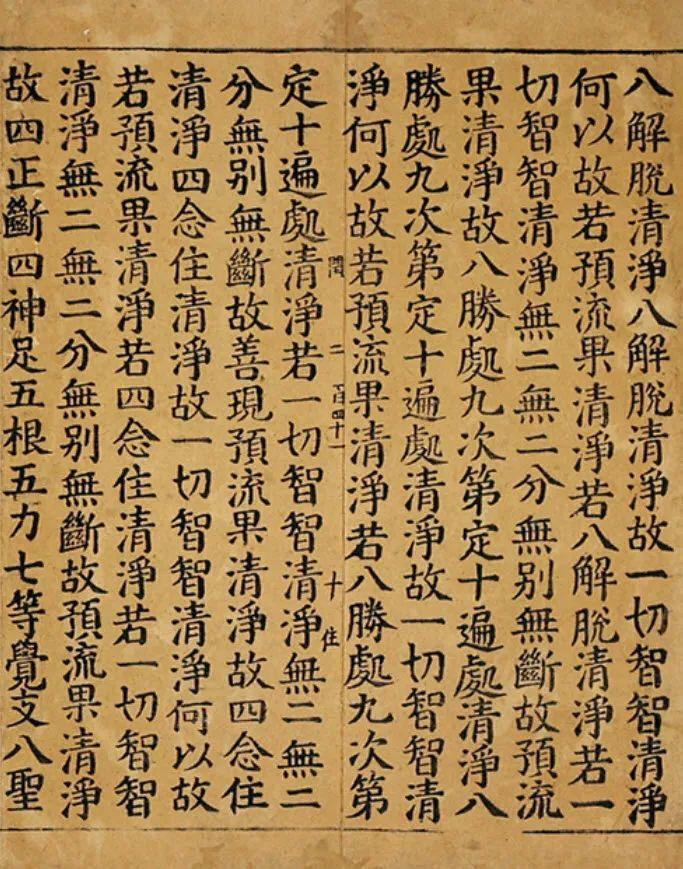 八解脫清淨八解脫清淨故一切智智清淨
何以故若預流果清淨若八解脫清淨若一
切智智清淨無二無二分無别無斷故預流
果清淨故八勝處九次第定十遍處清淨八
勝處九次第定十遍處清淨故一切智智清
淨何以故若預流果清淨若八勝處九次第
二百四十一 十 住
定十遍處清淨若一切智智清淨無二無二
分無别無斷故善現預流果清淨故四念住
清淨四念住清淨故一切智智清淨何以故
若預流果清淨若四念住清淨若一切智智
清淨無二無二分無别無斷故預流果清淨
故四正斷四神足五根五力七等覺支八聖